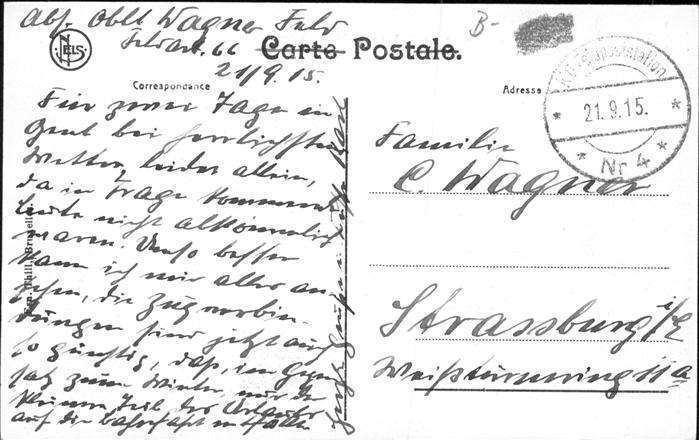 Abs. Oblt Wagner Feld
Feldart. 66
21/9.15.
NELS
Carte Postale.
B-
Correspondance
Adresse
21.9.15.
Nr 4
Für zwei Tage in
Gent bei herrlichstem
Wetter, leider allein,
da in Frage kommend
Leute nicht abkömmlich
waren. Umso besser
kann ich mir alles an-
sehen, die Zugverbin-
dungen sind jetzt auch
so günstig, dass, im Gegen
satz zum Winter, nur der
kleinere Teil des Urlaubs
auf die Bahnfahrt
Familie
C. Wagner
Strassburg i/E
Weißturmring 11a